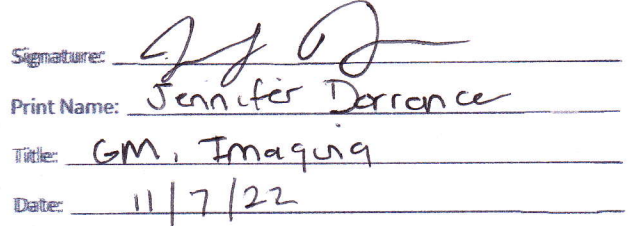 Signature:
Print Name: Jennifer Dorrance
Title: GM, Imaging
Date: 11/7/22